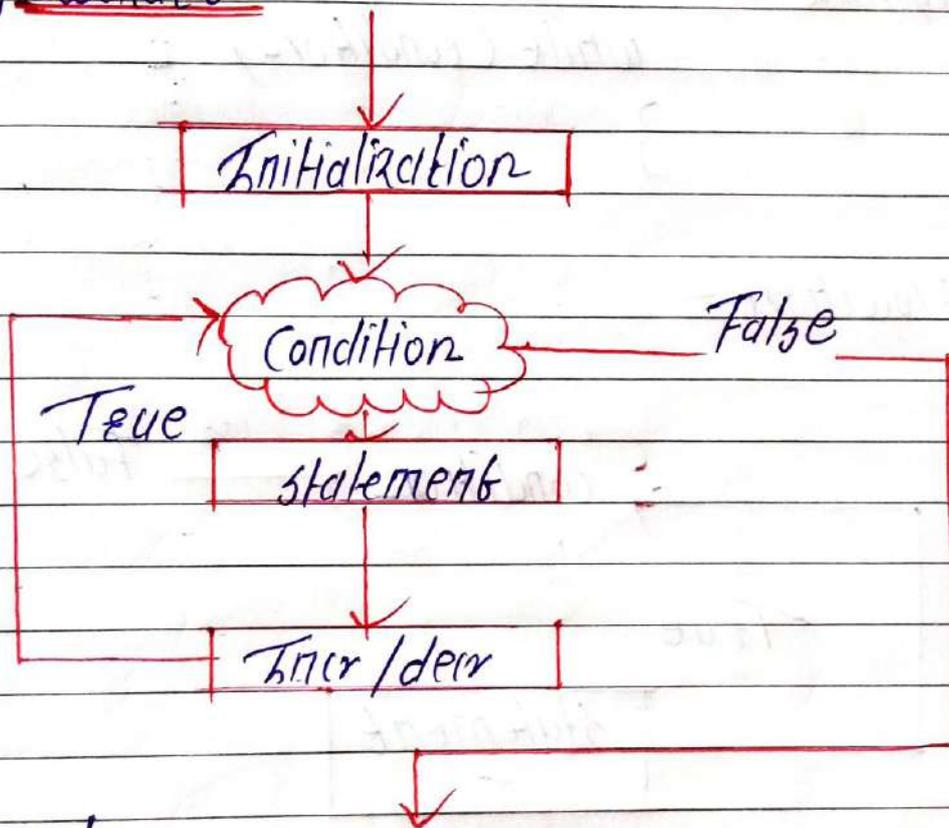 Initialization
Condition
False
True
statement
Incr/decr